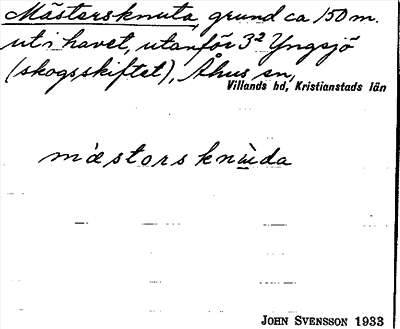 Mästersknuta, grund ca 150 m.
ut i havet, utanför 3² Yngsjö
(skogsskiftet), Åhus sn,
Villands hd, Kristianstads län
mæstorsknùda
JOHN SVENSSON 1933